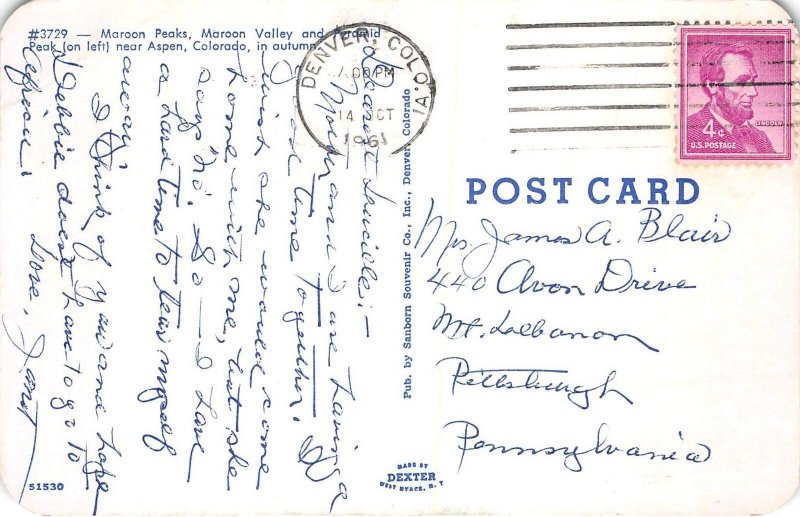 #3729 — Maroon Peaks, Maroon Valley and Pyramid
Peak (on left) near Aspen, Colorado, in autumn.
Dearest Lucille:-
Mother and I are having a
good time together. I
just she would come
home with me, but she
says "no". So — I have
a hard time to tear myself
away.
I think of you and hope
Debbie doesn't have to go to
Africa.
Love, Janet
51530
Pub. by Sanborn Souvenir Co., Inc., Denver, Colorado
MADE BY
DEXTER
WEST NYACK, N. Y.
DENVER, COLO.
1A
7:00 PM
14 OCT
1961
4¢
LINCOLN
U.S. POSTAGE
POST CARD
Mrs. James A. Blair
440 Avon Drive
Mt. Lebanon
Pittsburgh
Pennsylvania